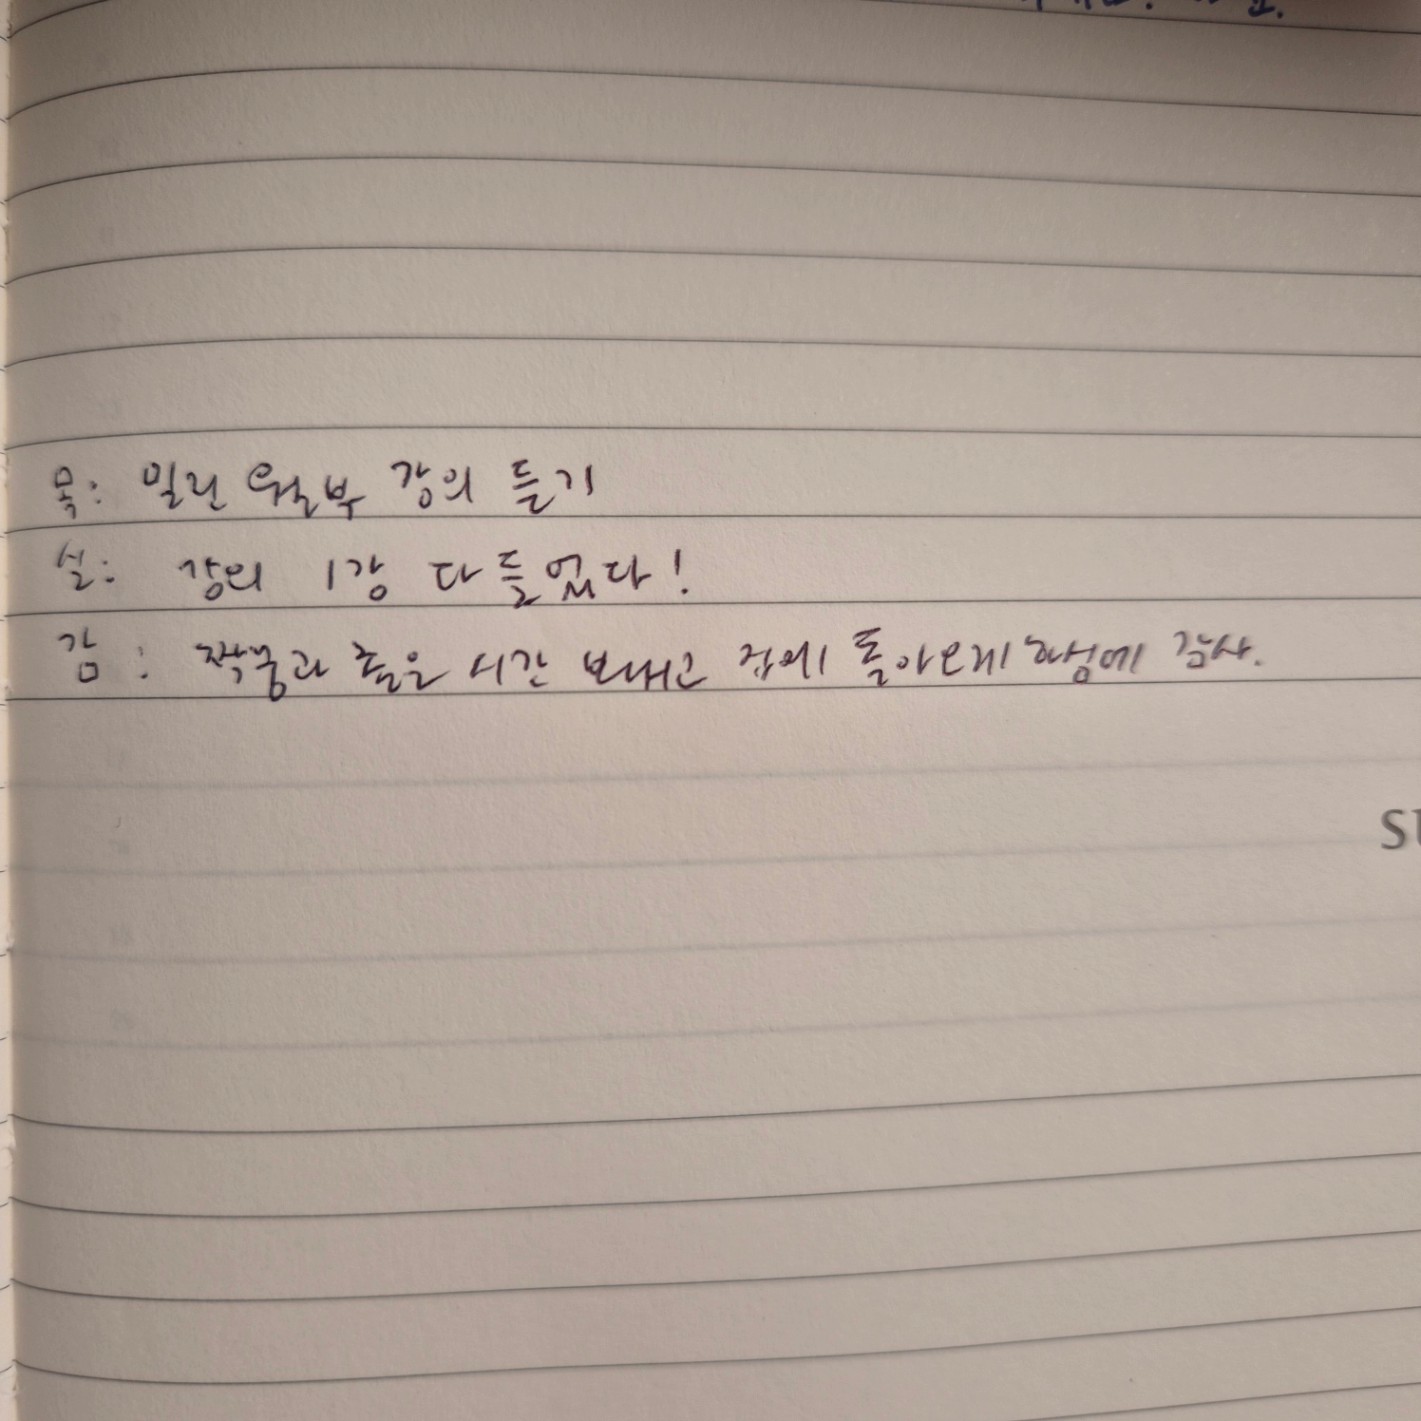 목: 밀린 월부 강의 듣기
실: 강의 1강 다 들었다!
감: 짝꿍과 좋은 시간 보내고 집에 돌아오게 하심에 감사.